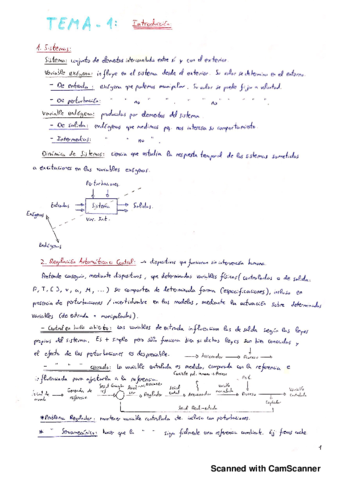 TEMA-1: Introducción
1. Sistemas:
Sistema: conjunto de elementos interconectados entre sí y con el exterior
Variable exógena: influye en el sistema desde el exterior. Su valor se determina en el entorno.
- De entrada: exógena que podemos manipular. Su valor se puede fijar a voluntad.
- De perturbación: " no "
Variable endógena: producidas por elementos del sistema
- De salida: endógenas que medimos pq nos interesa su comportamiento
- Intermedias: " no "
Dinámica de Sistemas: ciencia que estudia la respuesta temporal de los sistemas sometidos
a excitaciones en sus variables exógenas.
Perturbaciones
Entradas Sistema Salidas.
Var. Int.
Exógenas
Endógenas
2. Regulación Automática Control: → dispositivos que funcionan sin intervención humana.
Pretende conseguir, mediante dispositivos, que determinadas variables físicas (controladas o de salida.
P, T, C, I, v, a, M, ...) se comporten de determinada forma (especificaciones), incluso en
presencia de perturbaciones / incertidumbre en los modelos, mediante la actuación sobre determinadas
variables (de entrada = manipuladas).
- Control en lazo abierto: Las variables de entrada influencian las de salida según las leyes
propias del sistema. Es + simple pero sólo funciona bien si dichas leyes son bien conocidas y
el efecto de las perturbaciones es despreciable. → Accionador → Proceso →
- " " " cerrado: La variable controlada es medida, comparada con la referencia e
influenciada para ajustarla a la referencia.
Señal de mando → Generador de referencia → Regulador → Señal control → Accionador → Variable manipulada → Proceso → Variable controlada
Señal Realimentada Captador
* Problema Regulador: mantener variable controlada de activa con perturbaciones.
* " Servomecanismo: hacer que la " " siga fielmente una referencia cambiante.
1
Scanned with CamScanner